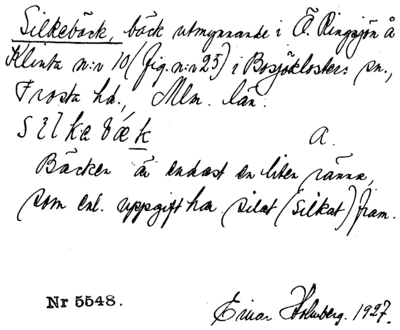 Silkebäck, bäck utmynnande i Ö. Ringsjön å
Klinta n:r 10 (fig. n:r 25) i Bosjöklosters sn.,
Frosta hd., Mlm. län.
sılkabæk a.
Bäcken är endast en liten ränna,
som enl. uppgift ha silat (silkat) fram.
Nr 5548. Einar Holmberg. 1927.